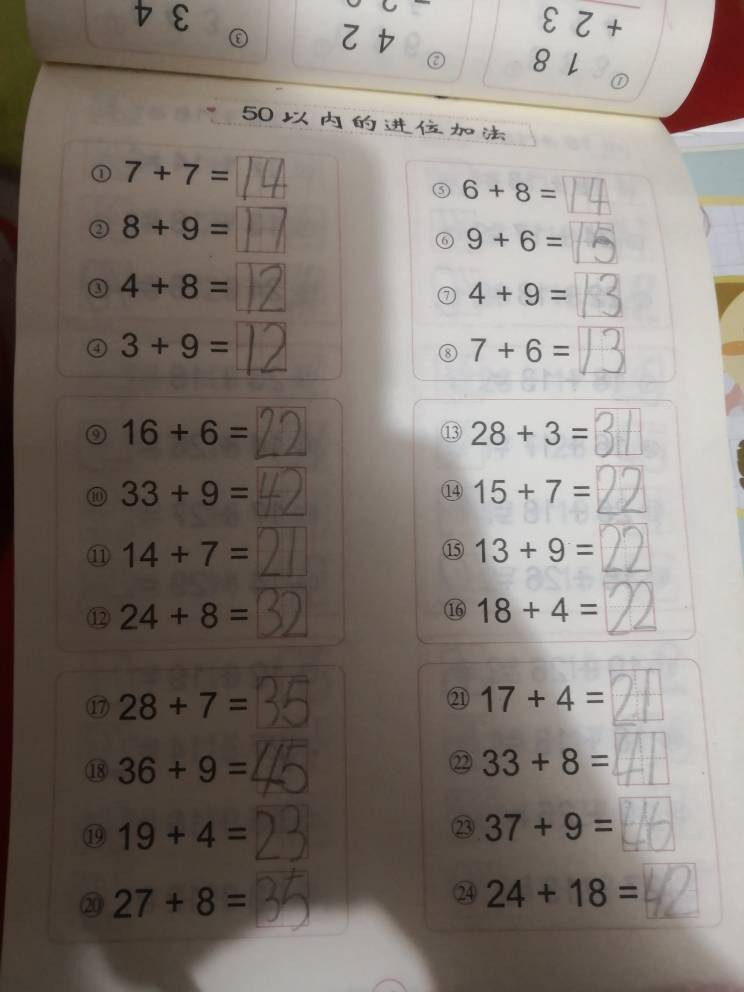 3 4
③
4 2
②
1 8
+ 2 3
①
50以内的进位加法
① 7 + 7 = 14
② 8 + 9 = 17
③ 4 + 8 = 12
④ 3 + 9 = 12
⑤ 6 + 8 = 14
⑥ 9 + 6 = 15
⑦ 4 + 9 = 13
⑧ 7 + 6 = 13
⑨ 16 + 6 = 22
⑩ 33 + 9 = 42
⑪ 14 + 7 = 21
⑫ 24 + 8 = 32
⑬ 28 + 3 = 31
⑭ 15 + 7 = 22
⑮ 13 + 9 = 22
⑯ 18 + 4 = 22
⑰ 28 + 7 = 35
⑱ 36 + 9 = 45
⑲ 19 + 4 = 23
⑳ 27 + 8 = 35
㉑ 17 + 4 = 21
㉒ 33 + 8 = 41
㉓ 37 + 9 = 46
㉔ 24 + 18 = 42